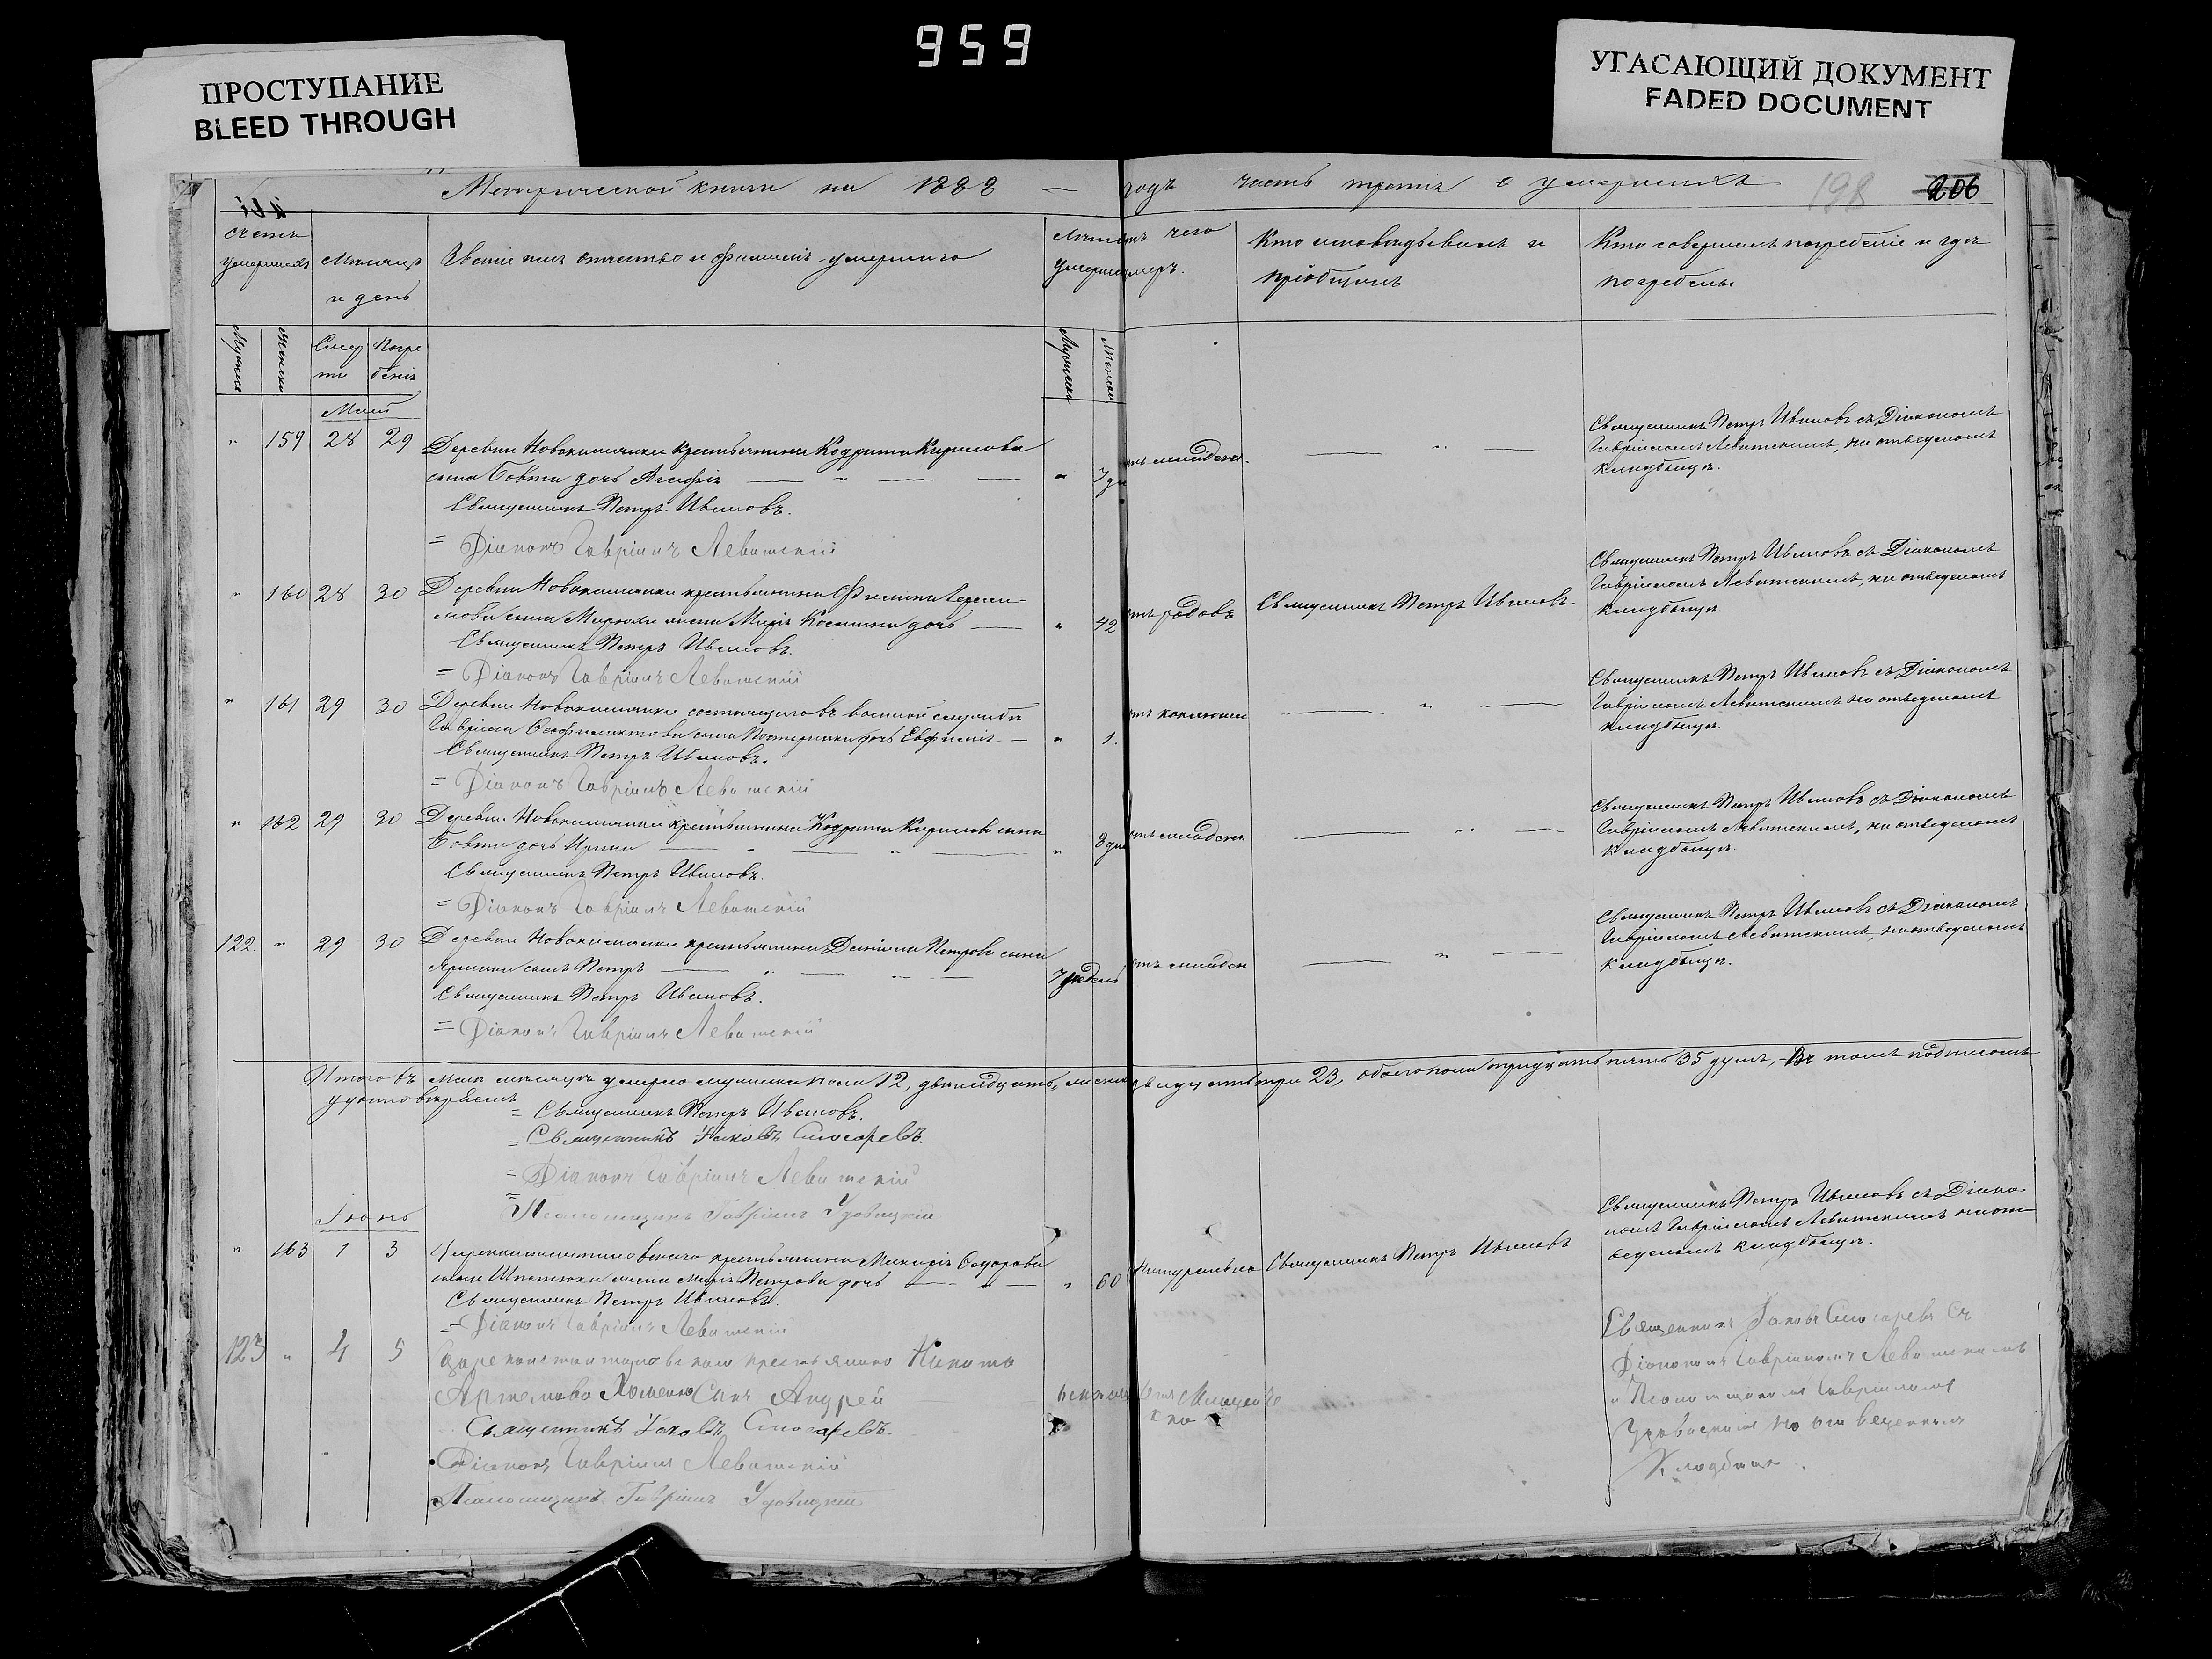 959
ПРОСТУПАНИЕ
BLEED THROUGH
УГАСАЮЩИЙ ДОКУМЕНТ
FADED DOCUMENT
Метрической книги на 1888 — годъ часть третія о умершихъ 198 206
Счетъ умершихъ
Мѣсяцъ и день
Званіе имя отчество и фамилія умершаго
Лѣта умершаго
отъ чего умеръ.
Кто исповѣдывалъ и пріобщалъ
Кто совершалъ погребеніе и гдѣ погребены
Мужеска
Женска
Смерти
Погребенія
Мужеска
Женска
Май
" 159 28 29 Деревни Новокиманки крестьянина Кодрата Кирилова
сына Бовта дочь Агафія — " — — " 7 дн отъ младен. — " —
Священникъ Петръ Ивановъ съ Діакономъ
Гавріиломъ Левитскимъ, на отведеномъ
кладбищѣ.
Священникъ Петръ Ивановъ.
= Діаконъ Гавріилъ Левитскій
" 160 28 30 Деревни Новокиманки крестьянина Филипа Гераси-
мова сына Мирюхи жена Марія Космина дочь — " 42 отъ родовъ Священникъ Петръ Ивановъ.
Священникъ Петръ Ивановъ съ Діакономъ
Гавріиломъ Левитскимъ, на отведеномъ
кладбищѣ.
Священникъ Петръ Ивановъ.
= Діаконъ Гавріилъ Левитскій
" 161 29 30 Деревни Новокиманки состоящаго въ военной службѣ
Гавріила Феофилактова сына Костернаки дочь Евфимія — " 1. отъ коклюша — " —
Священникъ Петръ Ивановъ съ Діакономъ
Гавріиломъ Левитскимъ на отведеномъ
кладбищѣ.
Священникъ Петръ Ивановъ.
= Діаконъ Гавріилъ Левитскій
" 162 29 30 Деревни Новокиманки крестьянина Кодрата Кирилова сына
Бовта дочь Ирина — " — " — " 8 дн отъ младен — " —
Священникъ Петръ Ивановъ съ Діакономъ
Гавріиломъ Левитскимъ, на отведеномъ
кладбищѣ.
Священникъ Петръ Ивановъ.
= Діаконъ Гавріилъ Левитскій
122. " 29 30 Деревни Новокиманки крестьянина Даніила Петрова сына
Ярмаки сынъ Петръ — " — " — 7 недель отъ младен — " —
Священникъ Петръ Ивановъ съ Діакономъ
Гавріиломъ Левитскимъ, на отведеномъ
кладбищѣ.
Священникъ Петръ Ивановъ.
= Діаконъ Гавріилъ Левитскій
Итого въ маѣ мѣсяцѣ умерло мужеска пола 12, двенадцать, женска двадцать три 23, обоего пола тридцать пять 35 душъ, - Въ томъ подписомъ
удостовѣряемъ
= Священникъ Петръ Ивановъ.
= Священникъ Іаковъ Слюсаревъ.
= Діаконъ Гавріилъ Левитскій
= Псаломщикъ Гавріилъ Удовицкій
Іюнь
" 163 1 3 Цареконстантиновскаго крестьянина Макарія Федорова
сына Шпетюхи жена Марія Петрова дочь — " — " 60 Натурально Священникъ Петръ Ивановъ
Священникъ Петръ Ивановъ съ Діако-
номъ Гавріиломъ Левитскимъ на от-
веденомъ кладбищѣ.
Священникъ Петръ Ивановъ.
= Діаконъ Гавріилъ Левитскій
123 " 4 5 Цареконстантиновскаго крестьянина Никиты
Артемова Хоменко Сынъ Андрей
Священникъ Іаковъ Слюсаревъ Съ
Діакономъ Гавріиломъ Левитскимъ
и Псаломщикомъ Гавріиломъ
Удовицкимъ на отведенномъ
Кладбищѣ.
Священникъ Іаковъ Слюсаревъ.
Діаконъ Гавріилъ Левитскій
Псаломщикъ Гавріилъ Удовицкій